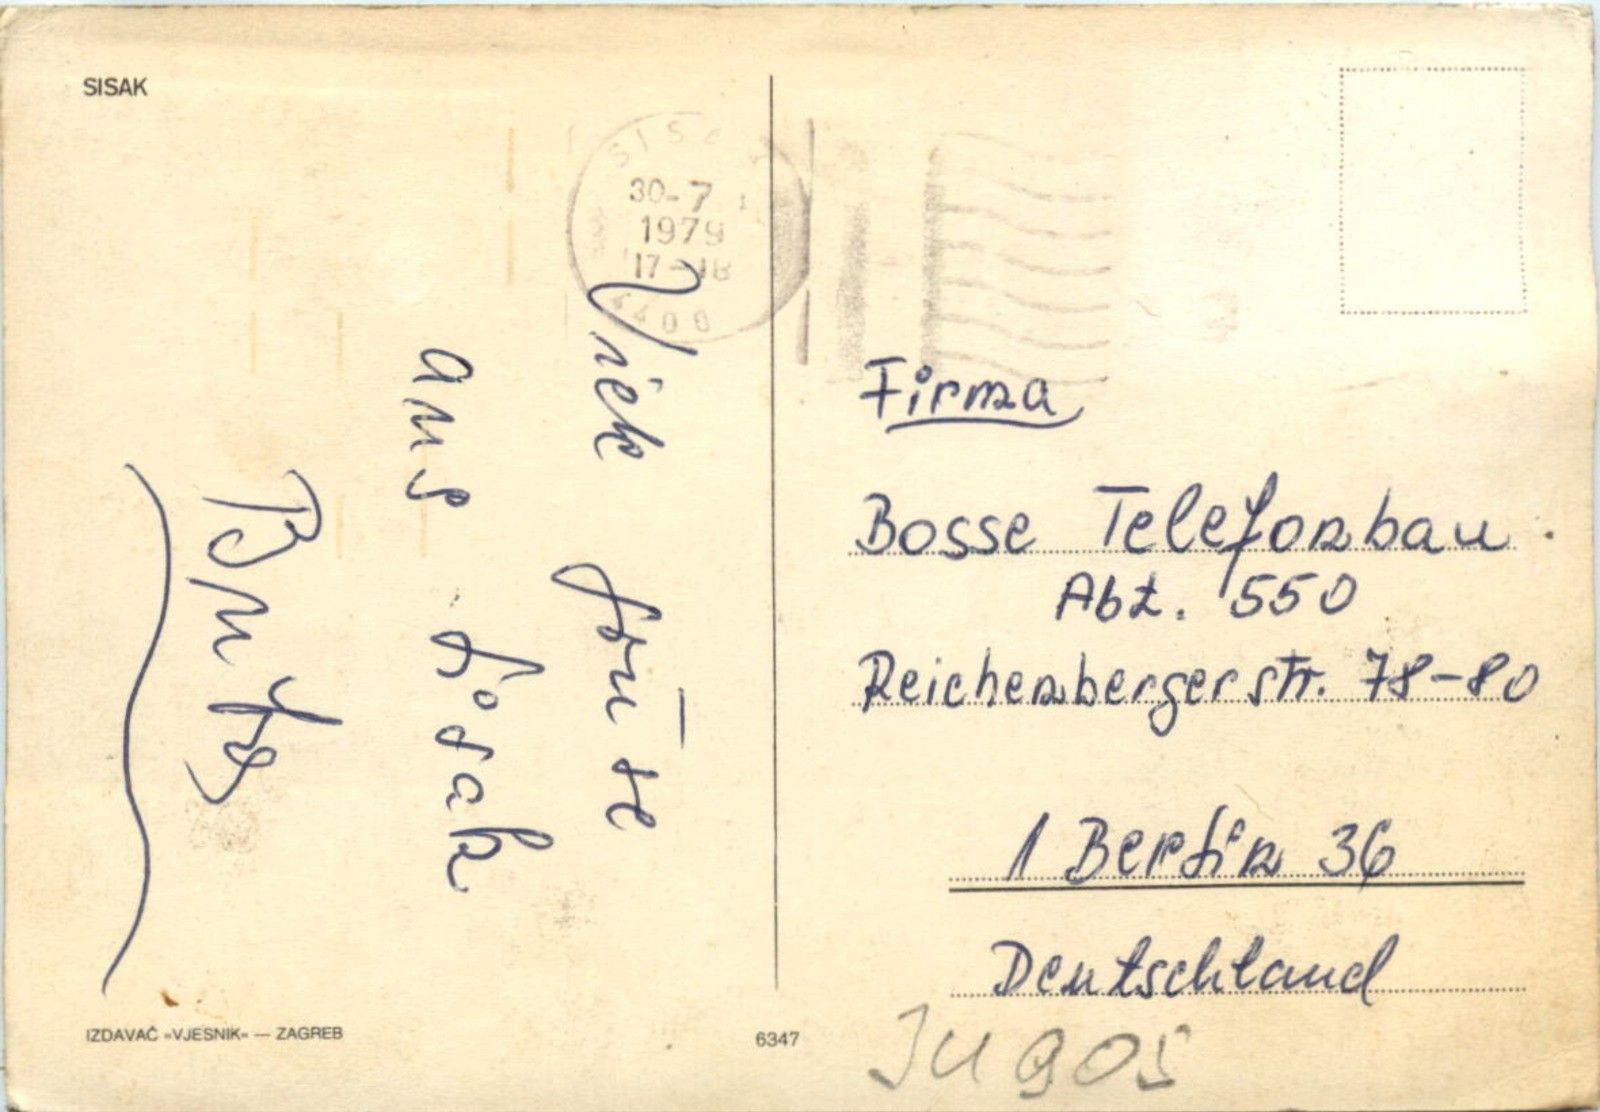 SISAK
SISAK
30-7
1979
17-18
44000
Viele Grüße
aus Sisak
Firma
Bosse Telefonbau
Abt. 550
Reichenbergerstr. 78-80
1 Berlin 36
Deutschland
IZDAVAČ »VJESNIK« — ZAGREB
6347
JUGOS